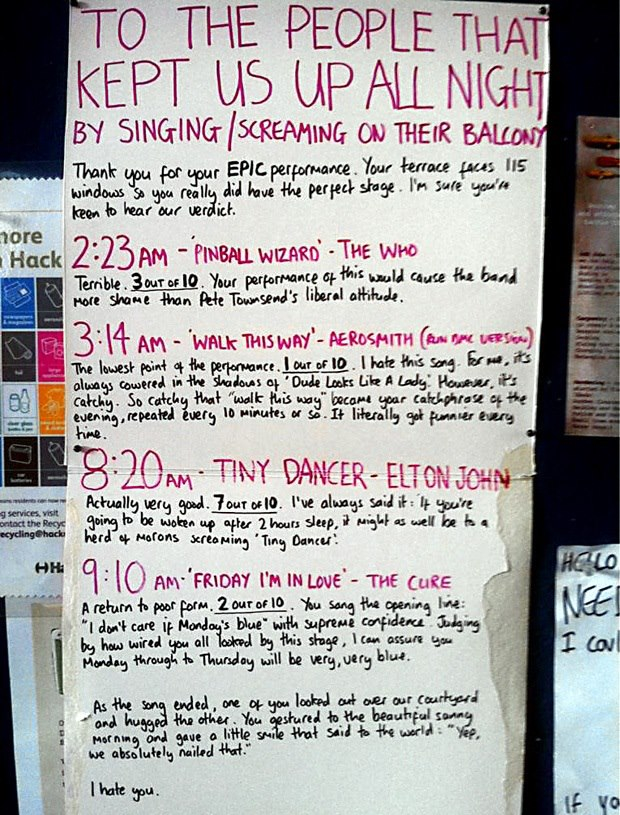 TO THE PEOPLE THAT
KEPT US UP ALL NIGHT
BY SINGING/SCREAMING ON THEIR BALCONY
Thank you for your EPIC performance. Your terrace faces 115
windows so you really did have the perfect stage. I'm sure you're
keen to hear our verdict.
2:23 AM - 'PINBALL WIZARD' - THE WHO
Terrible. 3 OUT OF 10. Your performance of this would cause the band
more shame than Pete Townsend's liberal attitude.
3:14 AM - 'WALK THIS WAY' - AEROSMITH (RUN DMC VERSION)
The lowest point of the performance. 1 OUT OF 10. I hate this song. For me, it's
always cowered in the shadows of 'Dude Looks Like A Lady'. However, it's
catchy. So catchy that "walk this way" became your catchphrase of the
evening, repeated every 10 minutes or so. It literally got funnier every
time.
8:20 AM - TINY DANCER - ELTON JOHN
Actually very good. 7 OUT OF 10. I've always said it: 'If you're
going to be woken up after 2 hours sleep, it might as well be to a
herd of morons screaming 'Tiny Dancer'.
9:10 AM - 'FRIDAY I'M IN LOVE' - THE CURE
A return to poor form. 2 OUT OF 10. You sang the opening line:
"I don't care if Monday's blue" with supreme confidence. Judging
by how wired you all looked by this stage, I can assure you
Monday through to Thursday will be very, very blue.
As the song ended, one of you looked out over our courtyard
and hugged the other. You gestured to the beautiful sunny
morning and gave a little smile that said to the world: "Yep,
we absolutely nailed that."
I hate you.
more
Hack
newspapers
& magazines
foil
clear glass
ng services, visit
ontact the Recyc
ecycling@hackn
HELLO
NEE
I coul
If yo